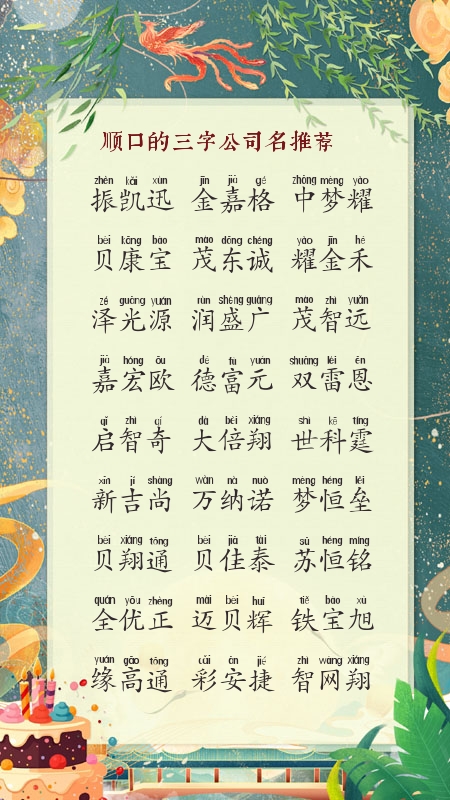 顺口的三字公司名推荐
zhèn kǎi xùn jīn jiā gé zhōng mèng yào
振凯迅 金嘉格 中梦耀
bèi kāng bǎo mào dōng chéng yào jīn hé
贝康宝 茂东诚 耀金禾
zé guāng yuán rùn shèng guǎng mào zhì yuǎn
泽光源 润盛广 茂智远
jiā hóng ōu dé fù yuán shuāng léi ēn
嘉宏欧 德富元 双雷恩
qǐ zhì qí dà bèi xiáng shì kē tíng
启智奇 大倍翔 世科霆
xīn jí shàng wàn nà nuò mèng héng lěi
新吉尚 万纳诺 梦恒垒
bèi xiáng tōng bèi jiā tài sū héng míng
贝翔通 贝佳泰 苏恒铭
quán yōu zhèng mài bèi huī tiě bǎo xù
全优正 迈贝辉 铁宝旭
yuán gāo tōng cǎi ān jié zhì wǎng xiáng
缘高通 彩安捷 智网翔